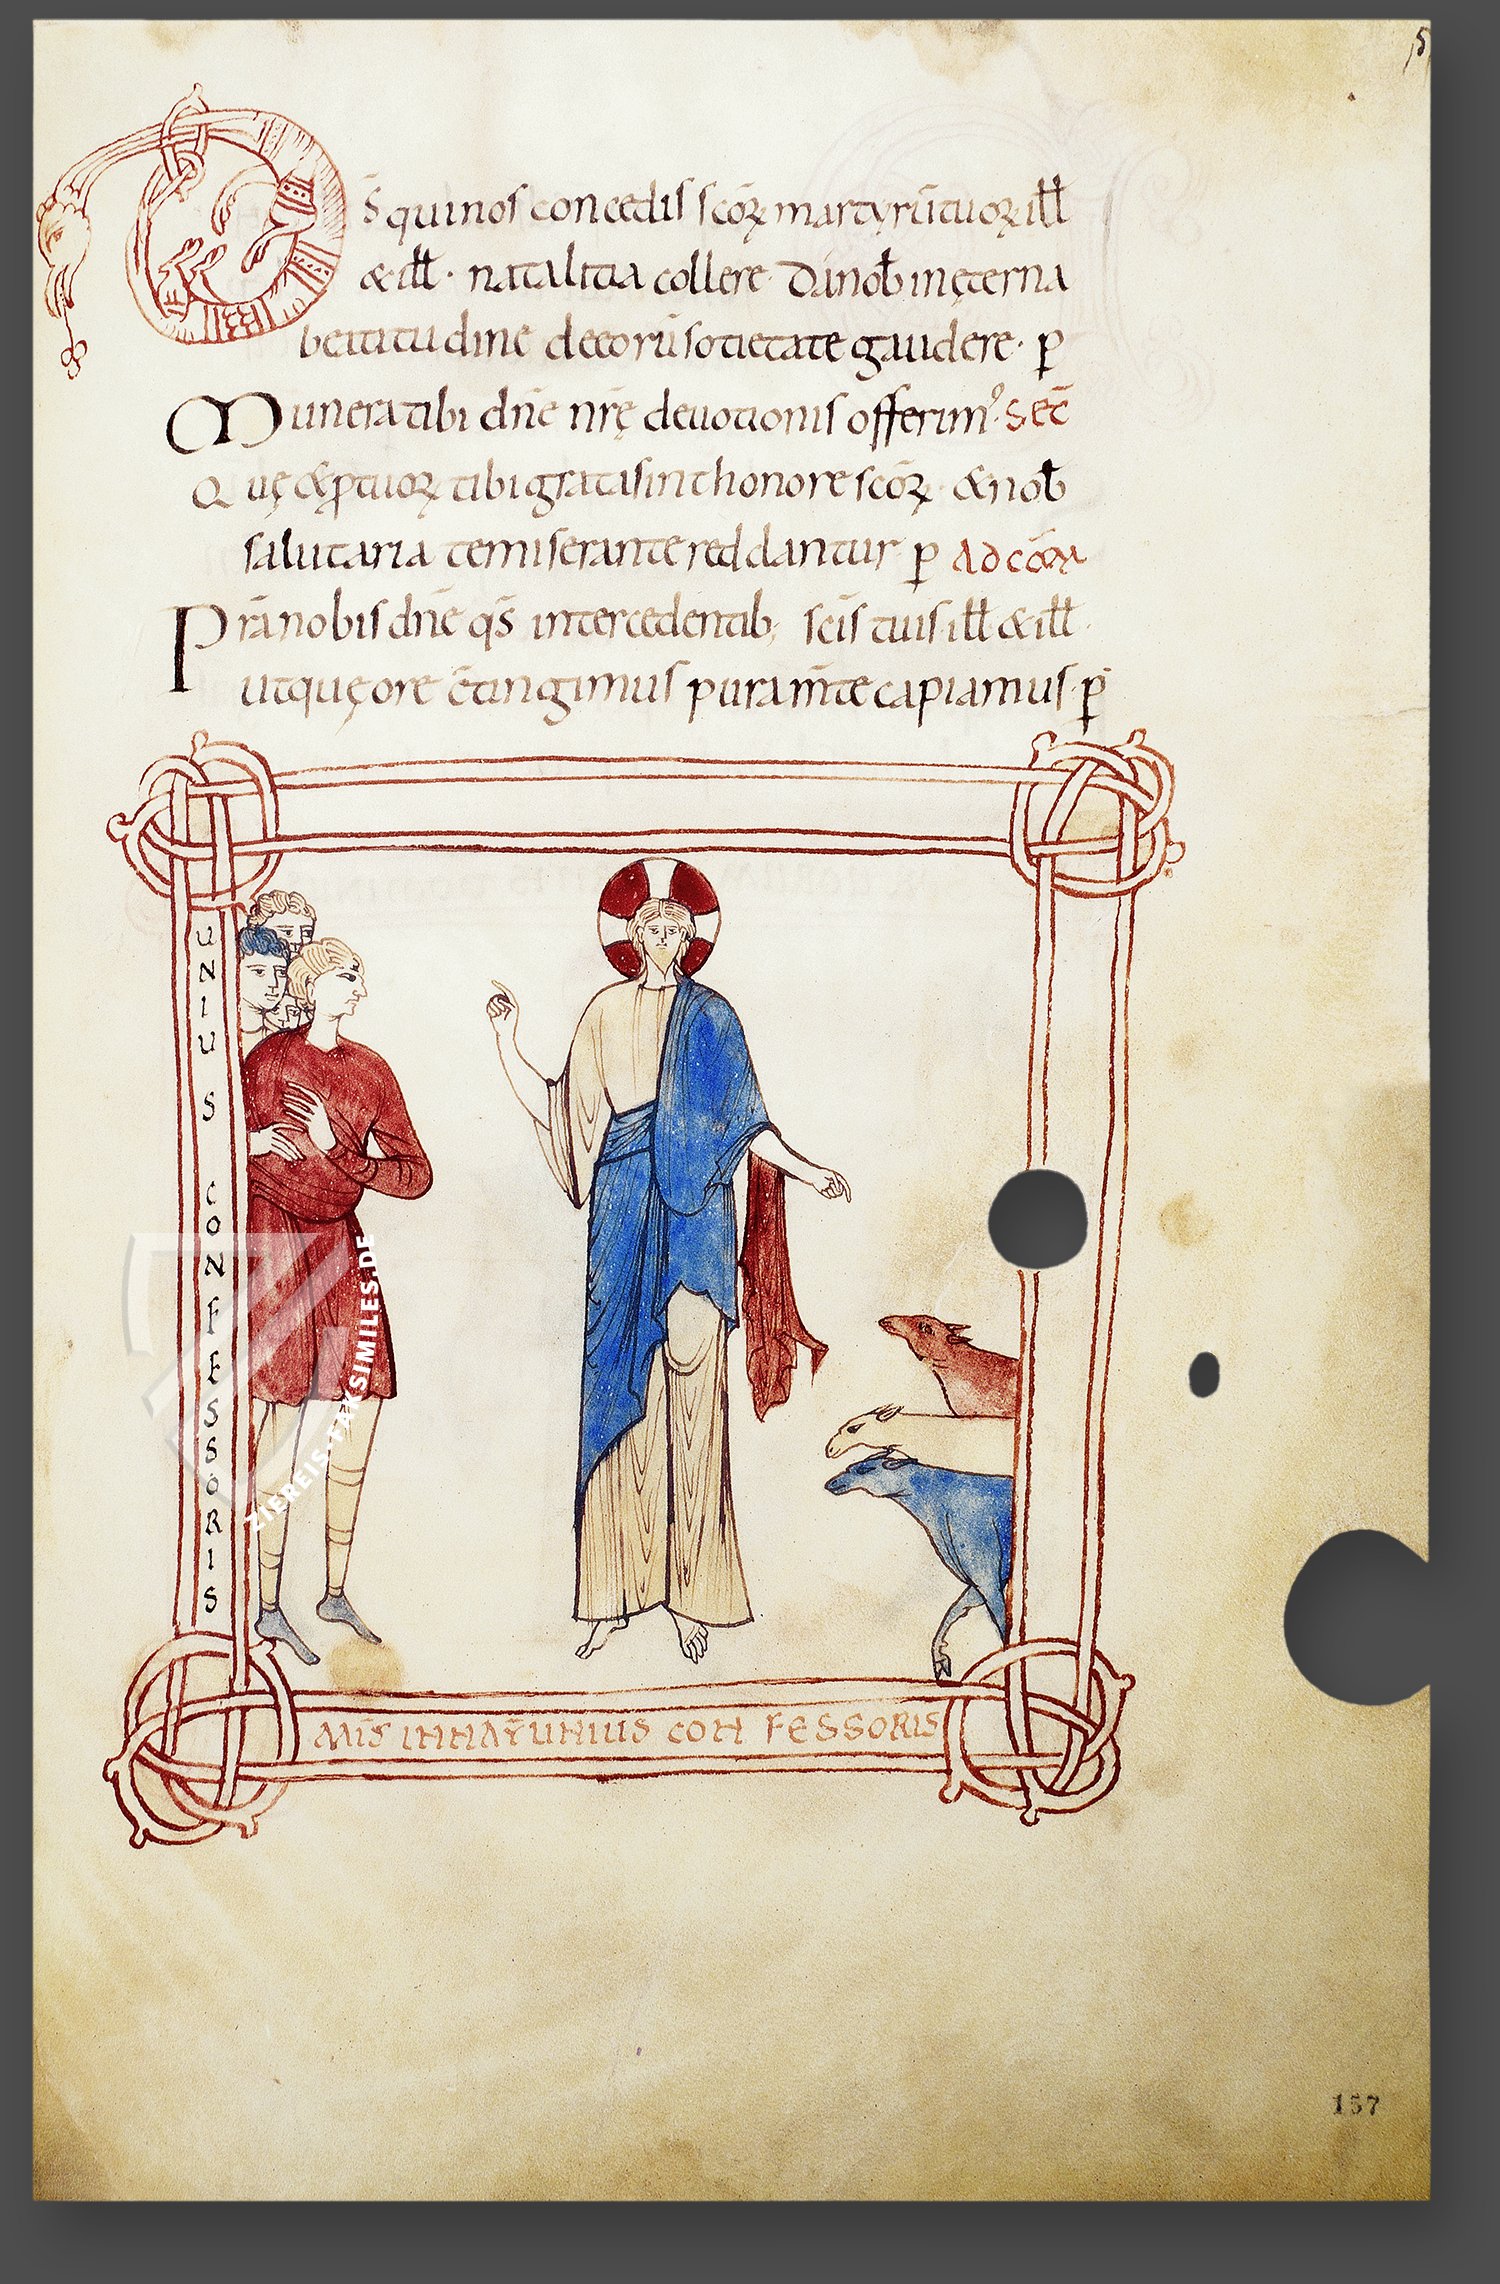 D̄s qui nos concedis scōꝝ martyrū tuoꝝ ill̄
& ill̄· natalitia collere· Da nob̄ in ęterna
beititudine deeorū sotietate gaudere· ꝑ
Munera tibi dn̄e nr̄ę deuotionis offerimꝰ· Secr̄
Quę & ꝓ tuoꝝ tibi grata sint honore scōꝝ· & nob̄
salutaria te miserante reddantur ꝑ Ad cōm̄
Prā nobis dn̄e qs̄ intercedentib; scīs tuis ill̄ & ill̄·
ut quę ore cōtingimus pura m̄te capiamus· ꝑ
UNIUS CONFESSORIS
MIS̄ IN NAT̄ UNIUS CONFESSORIS
ZIEREIS-FAKSIMILES.DE
157